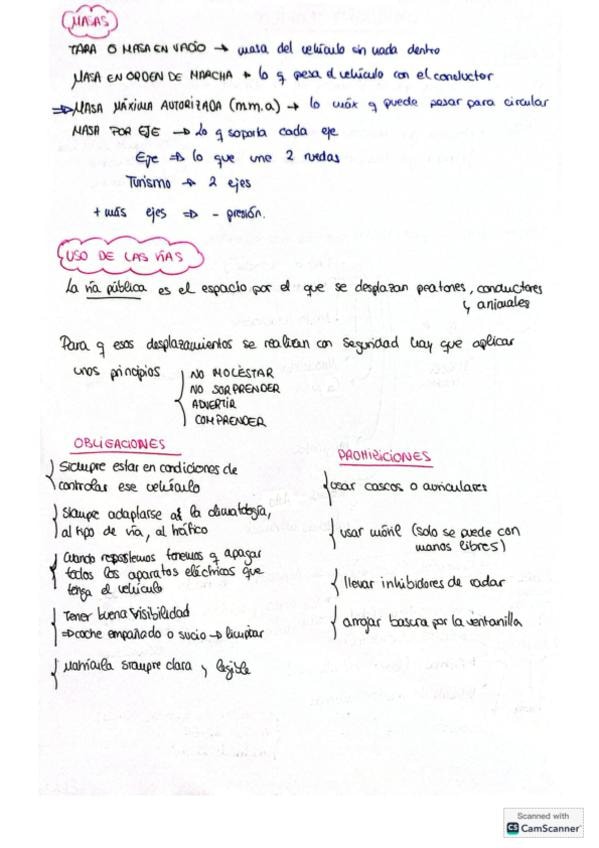 MASAS
TARA O MASA EN VACÍO → masa del vehículo sin nada dentro
MASA EN ORDEN DE MARCHA → lo q pesa el vehículo con el conductor
⇒ MASA MÁXIMA AUTORIZADA (m.m.a) → lo máx q puede pesar para circular
MASA POR EJE → Lo q soporta cada eje
Eje ⇒ lo que une 2 ruedas
Turismo → 2 ejes
+ más ejes ⇒ - presión.
USO DE LAS VÍAS
La vía pública es el espacio por el que se desplazan peatones, conductores
y animales
Para q esos desplazamientos se realicen con seguridad hay que aplicar
unos principios
NO MOLESTAR
NO SORPRENDER
ADVERTIR
COMPRENDER
OBLIGACIONES
Siempre estar en condiciones de
controlar ese vehículo
Siempre adaptarse a la climatología,
al tipo de vía, al tráfico
Cuando repostemos tenemos q apagar
todos los aparatos eléctricos que
tenga el vehículo
Tener buena visibilidad
⇒ coche empañado o sucio → limpiar
Matrícula siempre clara y legible
PROHIBICIONES
usar cascos o auriculares
usar móvil (solo se puede con
manos libres)
llevar inhibidores de radar
arrojar basura por la ventanilla
Scanned with
CS CamScanner